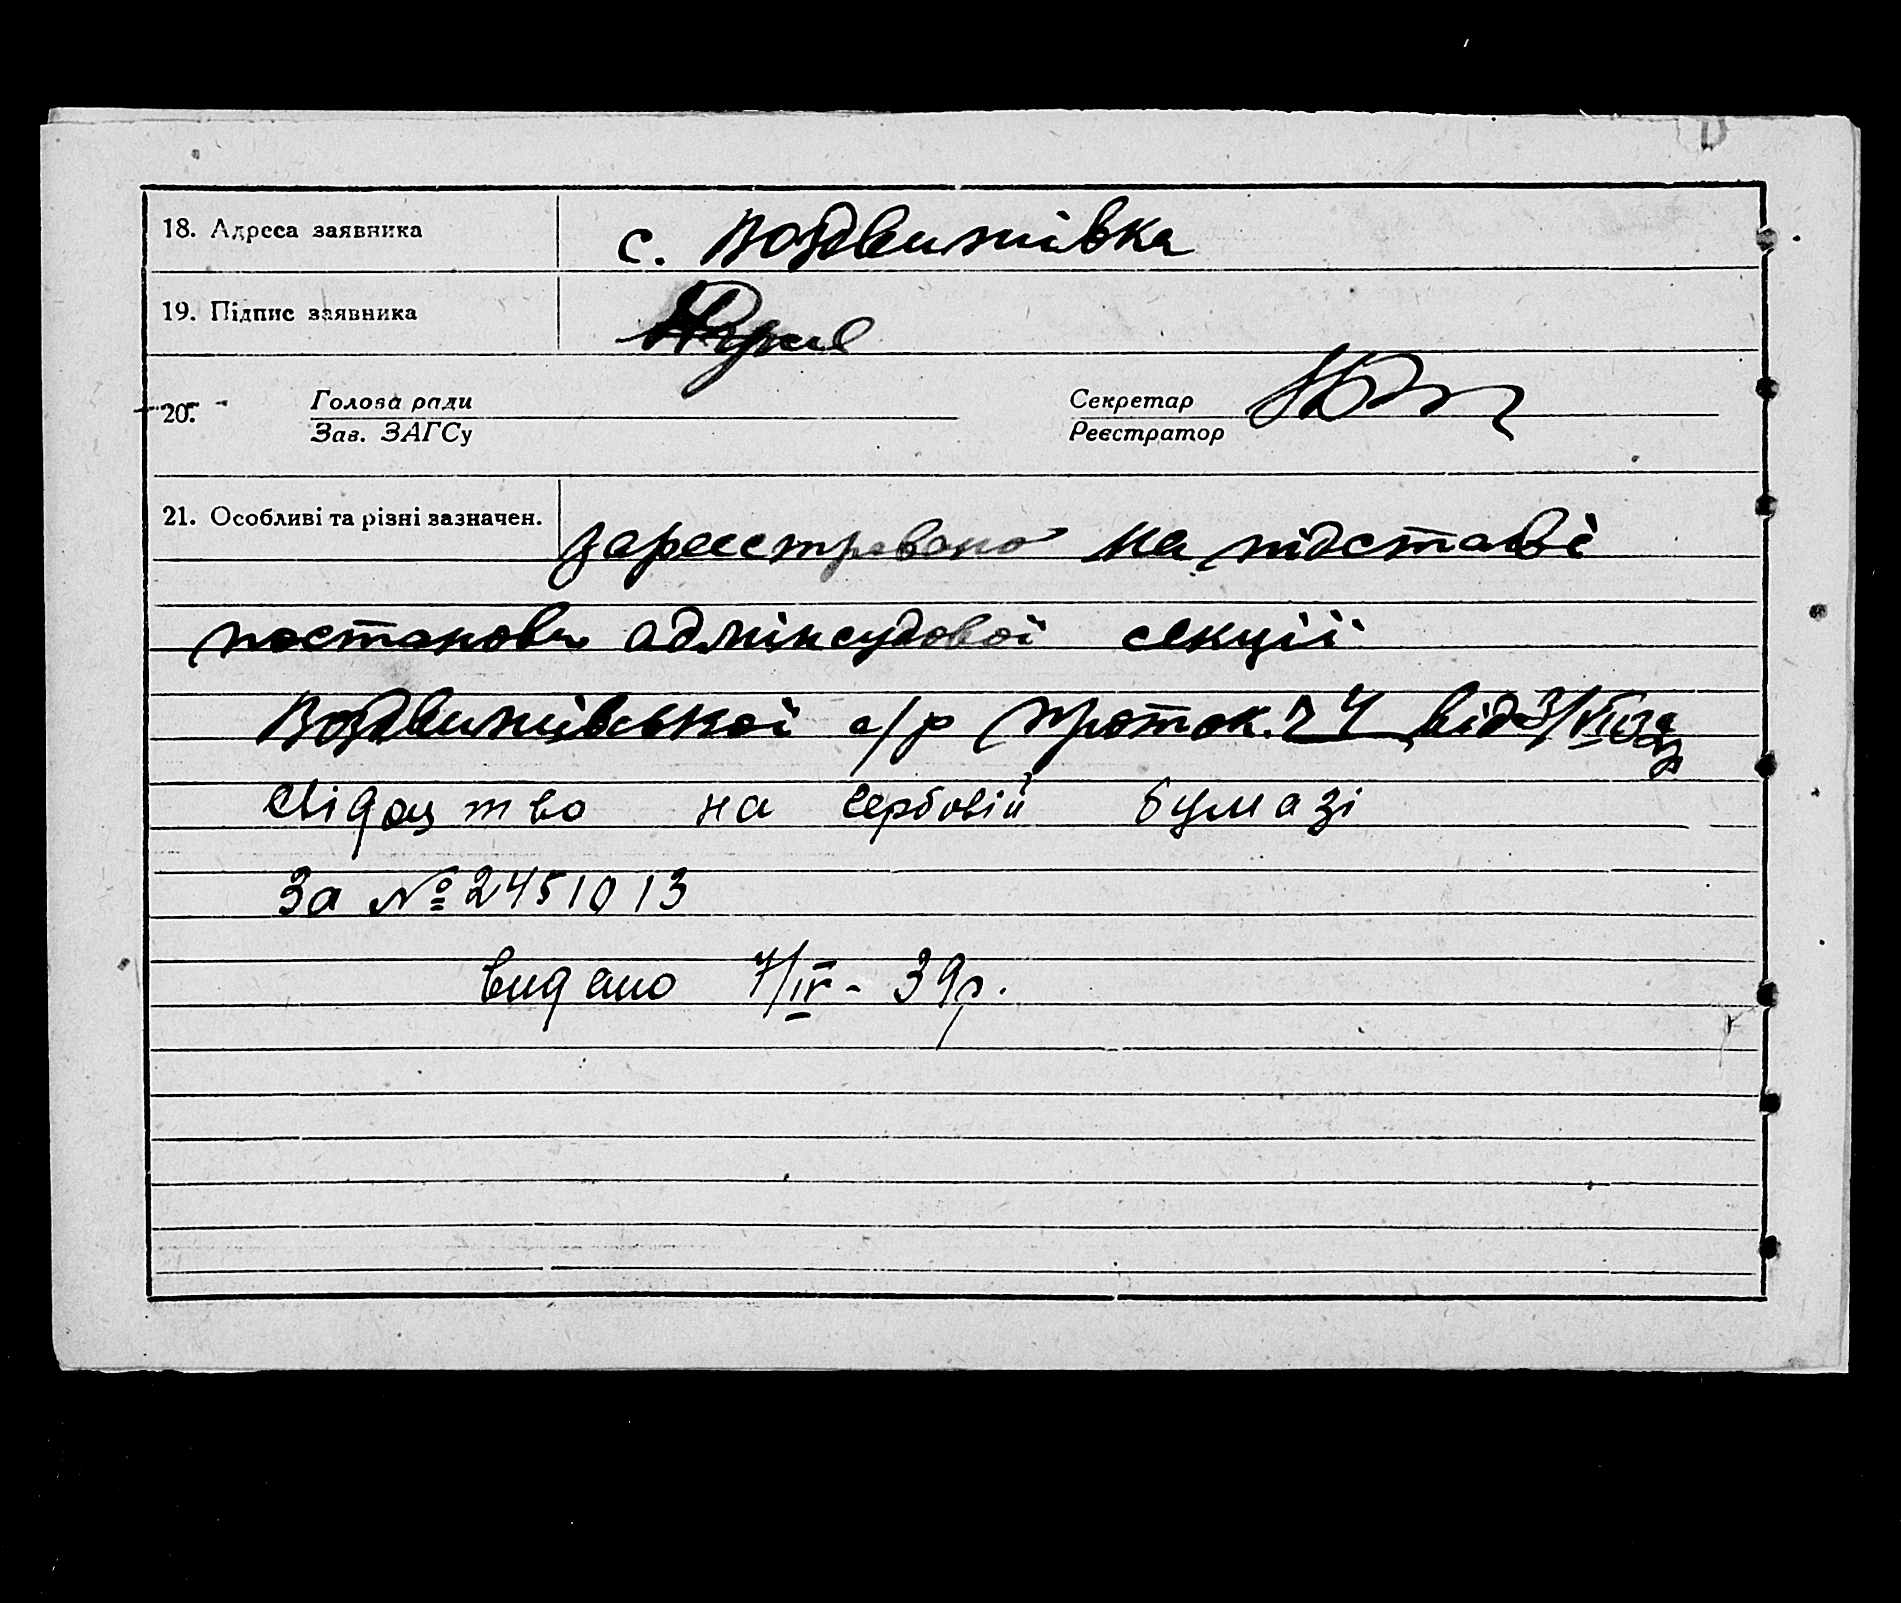 18. Адреса заявника с. Воздвижівка
19. Підпис заявника
20. Голова ради Секретар
Зав. ЗАГСу Реєстратор
21. Особливі та різні зазначен. зареєстровано на підставі
постанови адмінсудової секції
Воздвижівської с/р проток. 24 від 3/VII
свідоцтво на гербовій бумазі
За № 2451013
видано 7/IV - 39р.